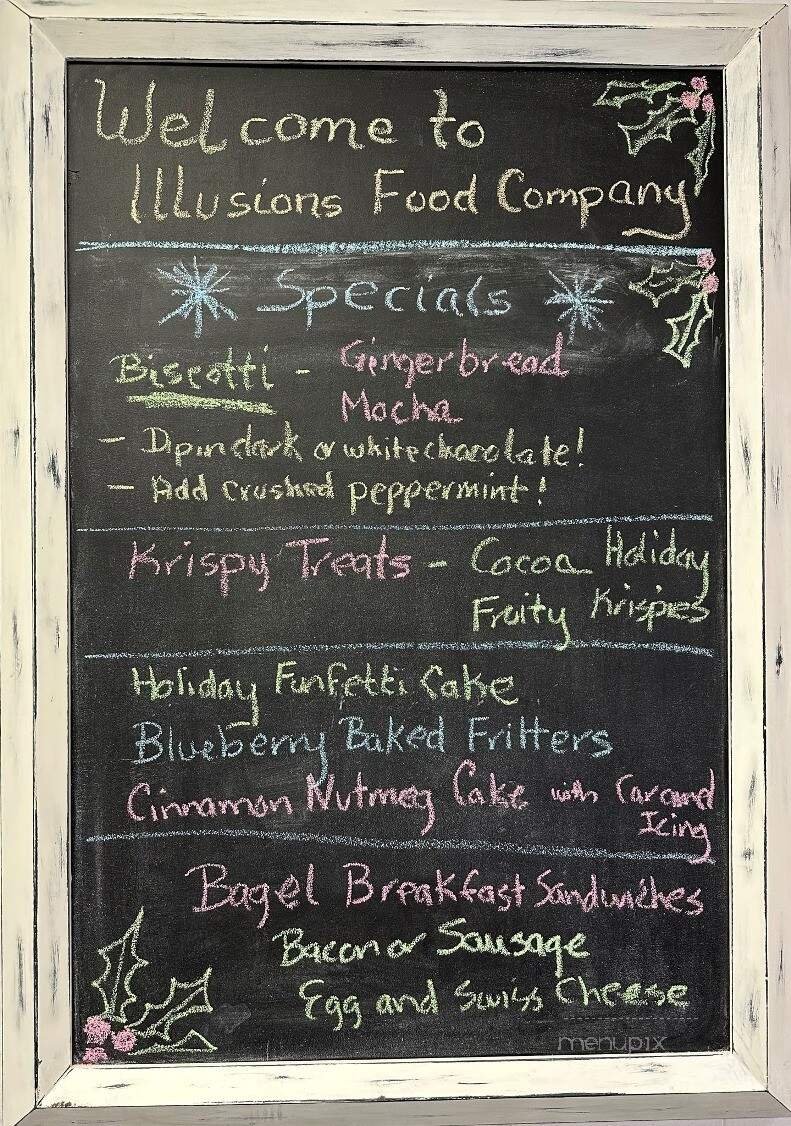 Welcome to
Illusions Food Company
Specials
Biscotti - Gingerbread
Mocha
- Dip in dark or white chocolate!
- Add crushed peppermint!
Krispy Treats - Cocoa Holiday
Fruity Krispies
Holiday Funfetti Cake
Blueberry Baked Fritters
Cinnamon Nutmeg Cake with Caramel
Icing
Bagel Breakfast Sandwiches
Bacon or Sausage
Egg and Swiss Cheese
menupix